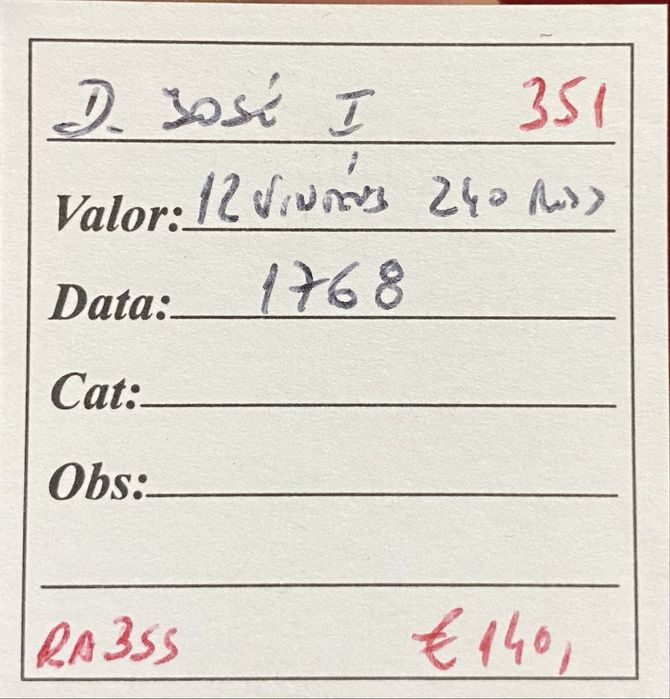 D. José I 351
Valor: 12 Vinténs 240 Reis
Data: 1768
Cat:
Obs:
RA355 € 140,